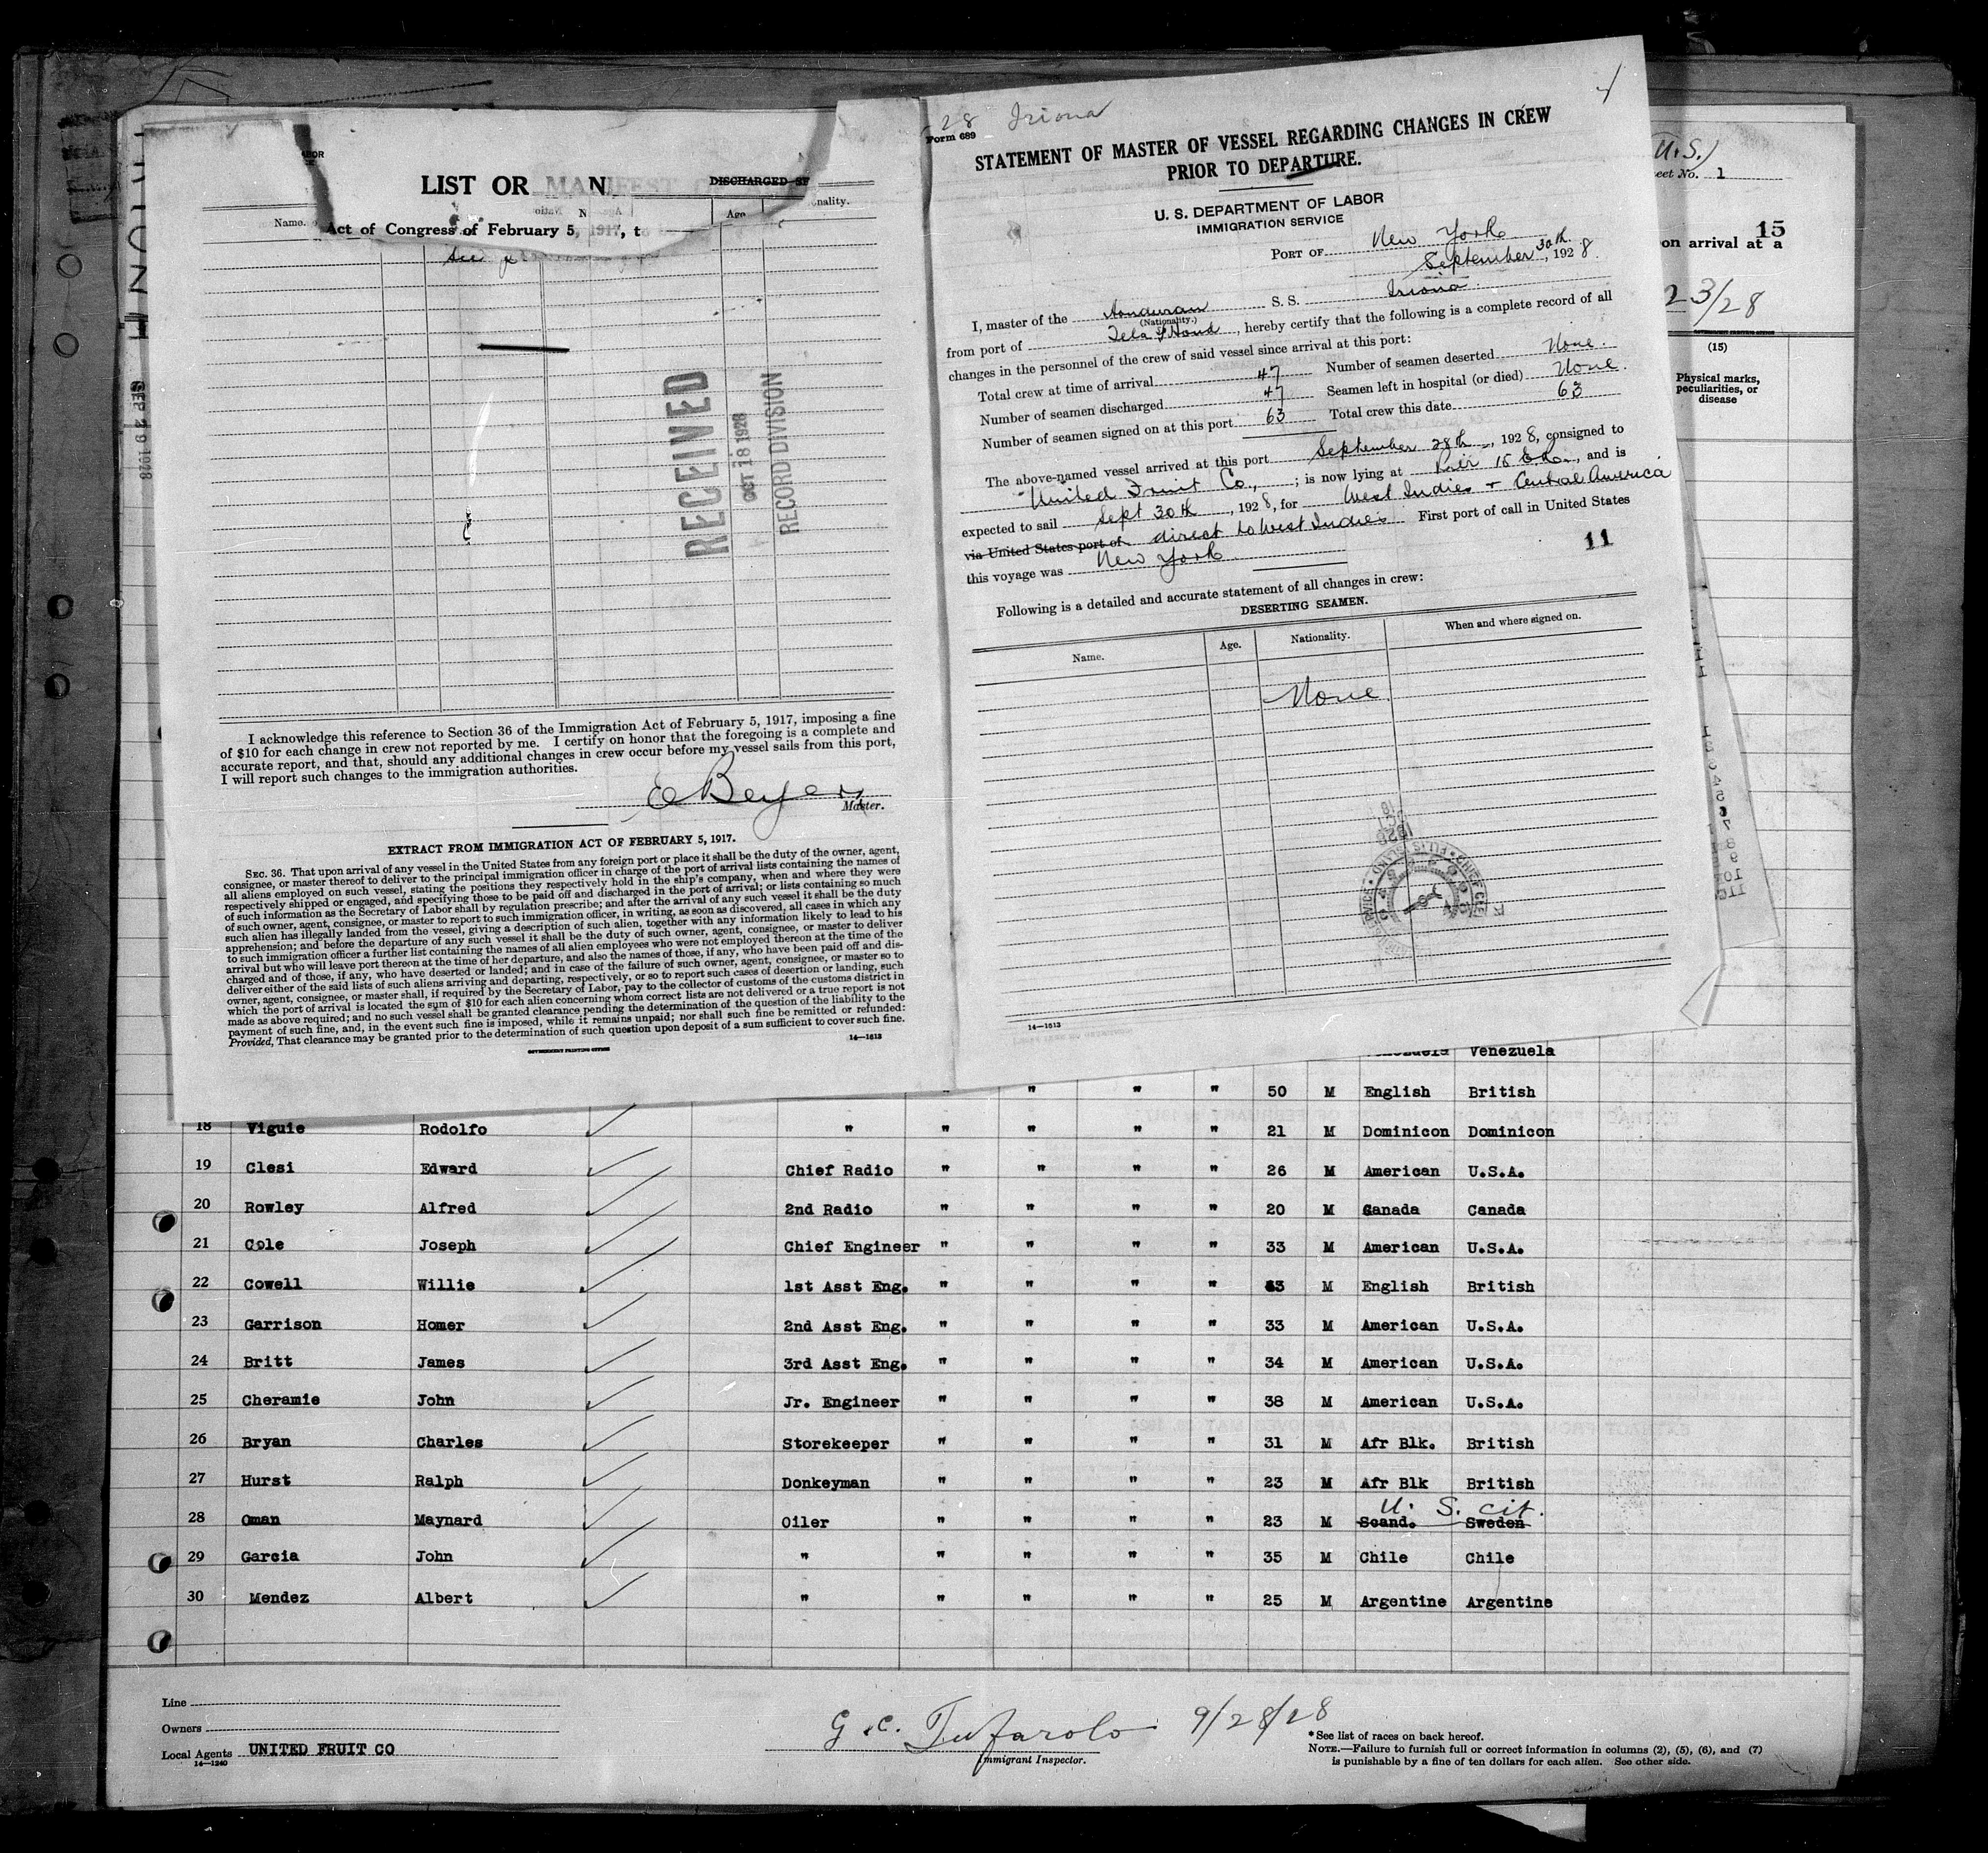 LIST OR MAN
DISCHARGED
Name.
Age
nality.
Act of Congress of February 5, 1917, t
See
RECEIVED
OCT 18 1928
RECORD DIVISION
SEP 29 1928
I acknowledge this reference to Section 36 of the Immigration Act of February 5, 1917, imposing a fine
of $10 for each change in crew not reported by me. I certify on honor that the foregoing is a complete and
accurate report, and that, should any additional changes in crew occur before my vessel sails from this port,
I will report such changes to the immigration authorities.
E Beyer
Master.
EXTRACT FROM IMMIGRATION ACT OF FEBRUARY 5, 1917.
SEC. 36. That upon arrival of any vessel in the United States from any foreign port or place it shall be the duty of the owner, agent,
consignee, or master thereof to deliver to the principal immigration officer in charge of the port of arrival lists containing the names of
all aliens employed on such vessel, stating the positions they respectively hold in the ship's company, when and where they were
respectively shipped or engaged, and specifying those to be paid off and discharged in the port of arrival; or lists containing so much
of such information as the Secretary of Labor shall by regulation prescribe; and after the arrival of any such vessel it shall be the duty
of such owner, agent, consignee, or master to report to such immigration officer, in writing, as soon as discovered, all cases in which any
such alien has illegally landed from the vessel, giving a description of such alien, together with any information likely to lead to his
apprehension; and before the departure of any such vessel it shall be the duty of such owner, agent, consignee, or master to deliver
to such immigration officer a further list containing the names of all alien employees who were not employed thereon at the time of the
arrival but who will leave port thereon at the time of her departure, and also the names of those, if any, who have been paid off and dis-
charged and of those, if any, who have deserted or landed; and in case of the failure of such owner, agent, consignee, or master so to
deliver either of the said lists of such aliens arriving and departing, respectively, or so to report such cases of desertion or landing, such
owner, agent, consignee, or master shall, if required by the Secretary of Labor, pay to the collector of customs of the customs district in
which the port of arrival is located the sum of $10 for each alien concerning whom correct lists are not delivered or a true report is not
made as above required; and no such vessel shall be granted clearance pending the determination of the question of the liability to the
payment of such fine, and, in the event such fine is imposed, while it remains unpaid; nor shall such fine be remitted or refunded:
Provided, That clearance may be granted prior to the determination of such question upon deposit of a sum sufficient to cover such fine.
GOVERNMENT PRINTING OFFICE
14—1613
28 Iriona
Form 689
STATEMENT OF MASTER OF VESSEL REGARDING CHANGES IN CREW
PRIOR TO DEPARTURE.
U. S. DEPARTMENT OF LABOR
IMMIGRATION SERVICE
PORT OF New York
September 30th, 1928.
I, master of the Honduran S. S. Iriona
(Nationality.)
from port of Tela Hond, hereby certify that the following is a complete record of all
changes in the personnel of the crew of said vessel since arrival at this port:
Total crew at time of arrival 47 Number of seamen deserted None.
Number of seamen discharged 47 Seamen left in hospital (or died) None.
Number of seamen signed on at this port 63 Total crew this date 63
The above-named vessel arrived at this port September 28th, 1928, consigned to
United Fruit Co., ; is now lying at Pier 15 E.R., and is
expected to sail Sept 30th, 1928, for West Indies + Central America
via United States port of direct to West Indies First port of call in United States
this voyage was New York
11
Following is a detailed and accurate statement of all changes in crew:
DESERTING SEAMEN.
Name. Age. Nationality. When and where signed on.
None
14—1613
(U.S.)
eet No. 1
15
on arrival at a
23/28
GOVERNMENT PRINTING OFFICE
(15)
Physical marks,
peculiarities, or
disease
Venezuela
" " " 50 M English British
18 Viguie Rodolfo " " " " " 21 M Dominicon Dominicon
19 Clesi Edward Chief Radio " " " " 26 M American U.S.A.
20 Rowley Alfred 2nd Radio " " " " 20 M Canada Canada
21 Cole Joseph Chief Engineer " " " " 33 M American U.S.A.
22 Cowell Willie 1st Asst Eng. " " " " 3 M English British
23 Garrison Homer 2nd Asst Eng. " " " " 33 M American U.S.A.
24 Britt James 3rd Asst Eng. " " " " 34 M American U.S.A.
25 Cheramie John Jr. Engineer " " " " 38 M American U.S.A.
26 Bryan Charles Storekeeper " " " " 31 M Afr Blk. British
27 Hurst Ralph Donkeyman " " " " 23 M Afr Blk British
U. S. cit.
28 Oman Maynard Oiler " " " " 23 M Scand. Sweden
29 Garcia John " " " " " 35 M Chile Chile
30 Mendez Albert " " " " " 25 M Argentine Argentine
Line
Owners
Local Agents UNITED FRUIT CO
14—1240
G. C. Tufarolo 9/28/28
Immigrant Inspector.
*See list of races on back hereof.
NOTE.—Failure to furnish full or correct information in columns (2), (5), (6), and (7)
is punishable by a fine of ten dollars for each alien. See other side.